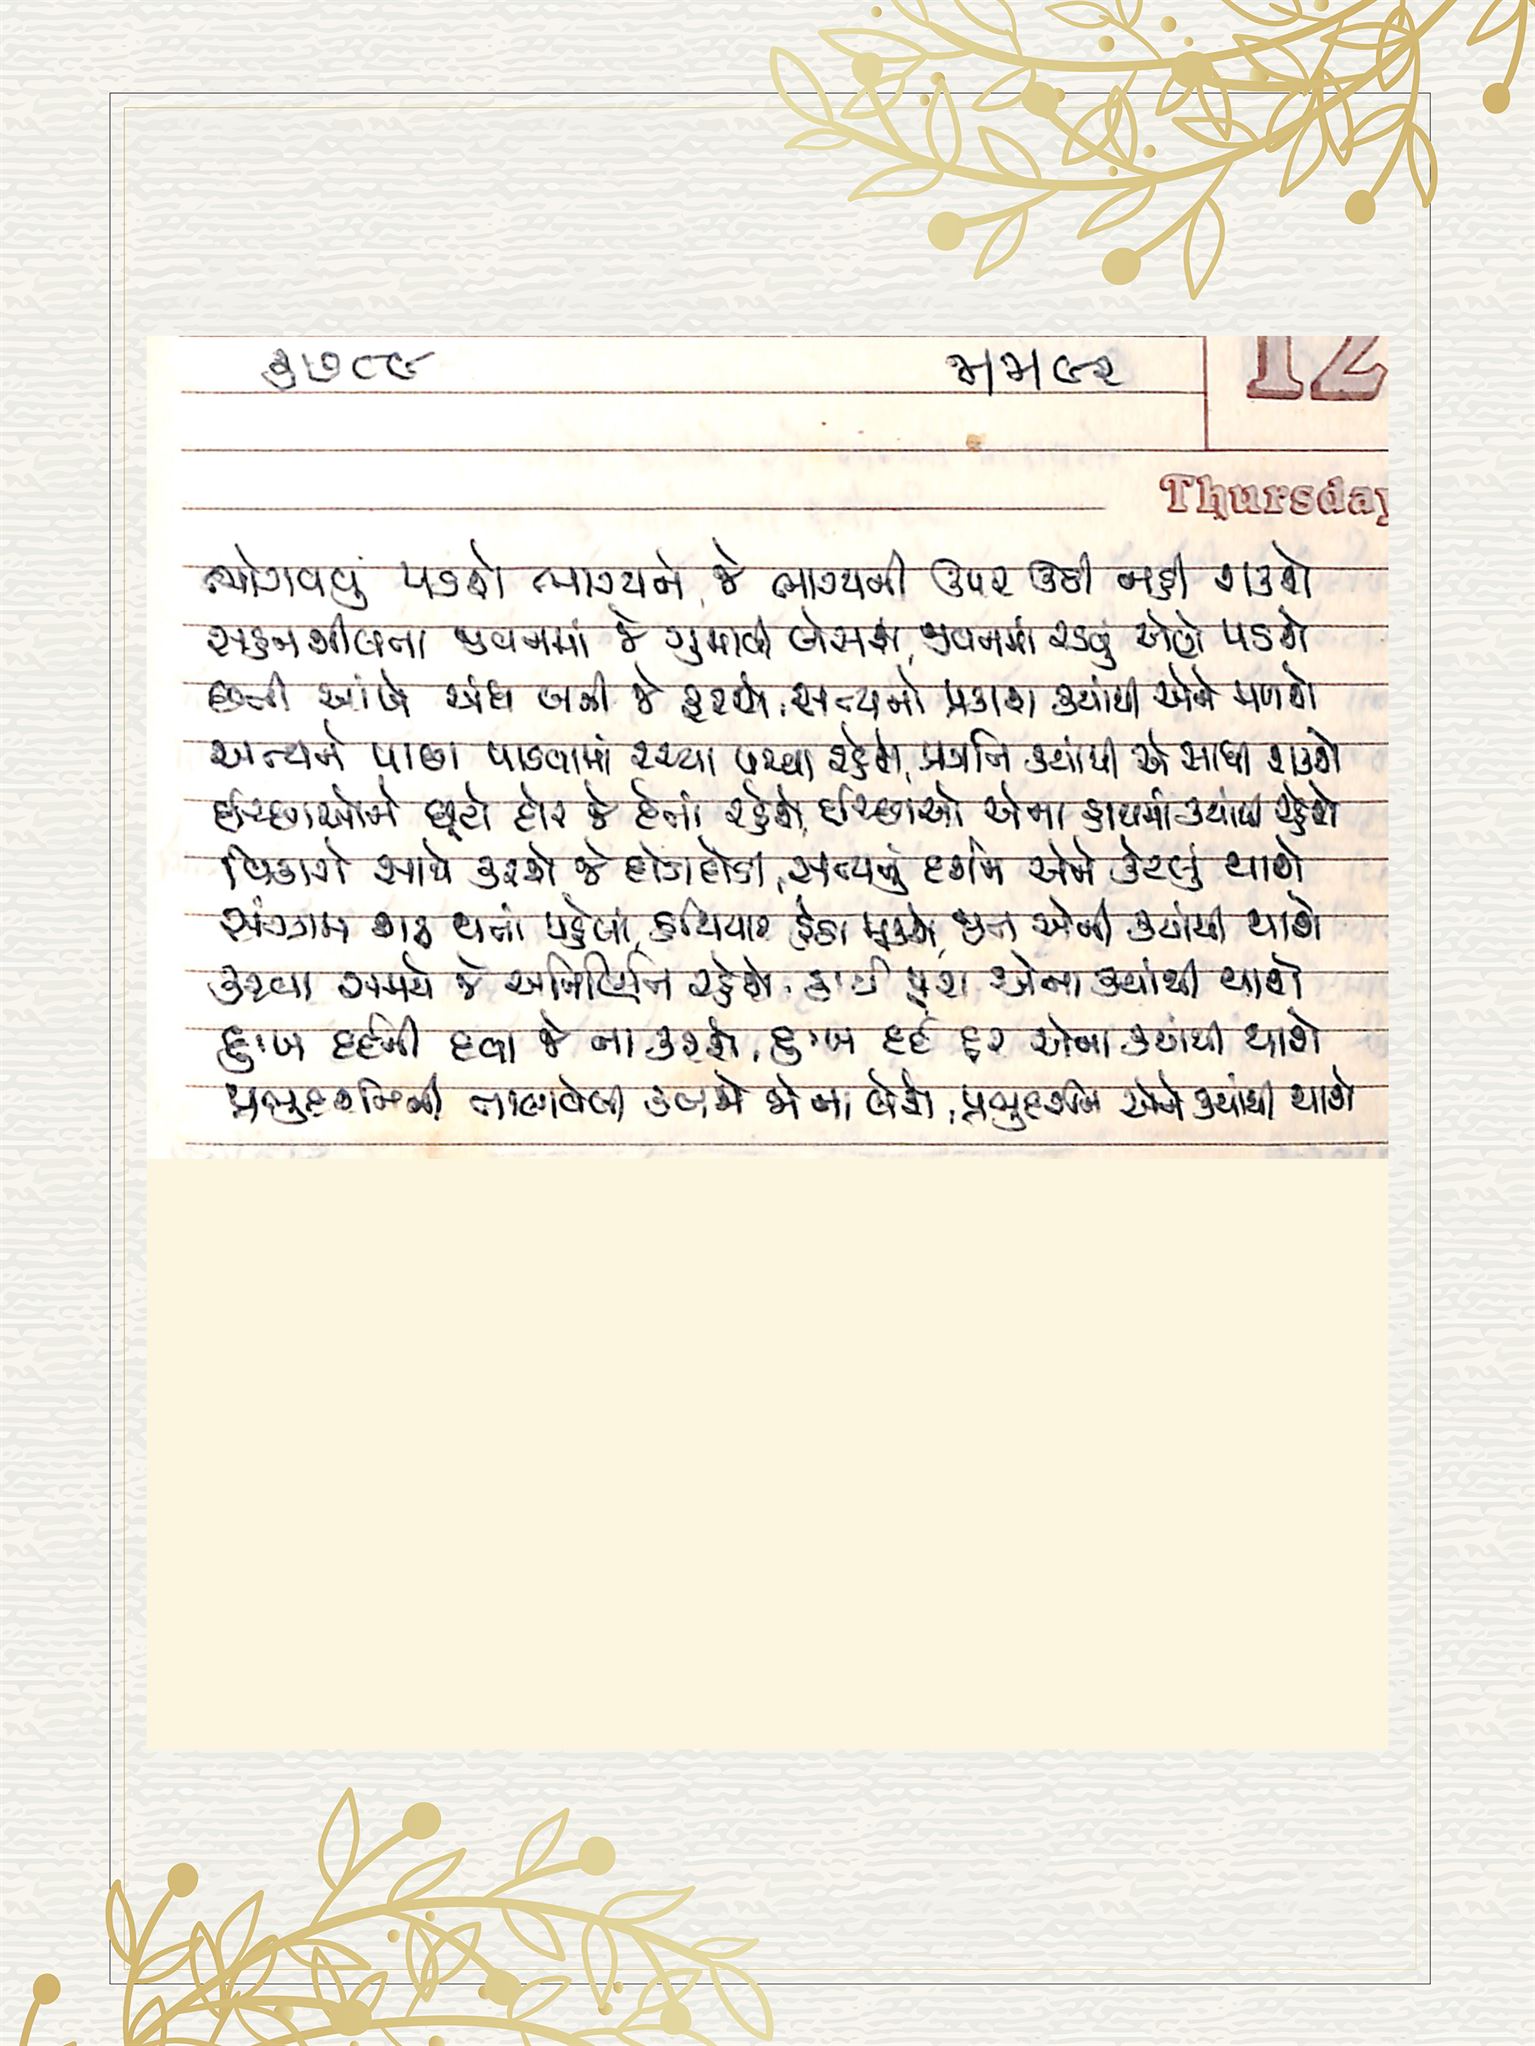 ૩૭૮૯ ૫।૫।૯૨ 12
Thursday
ભોગવવું પડશે ભાગ્યને, જે ભાગ્યની ઉપર ઉઠી નહી શકશે
સહનશીલતા જીવનમાં જે ગુમાવી બેસશે, જીવનમાં રડવું એણે પડશે
છતી આંખે અંધ બની જે ફરશે, સત્યનો પ્રકાશ ક્યાંથી એને મળશે
અન્યને પાછા પાડવામાં રચ્યા પચ્યા રહેશે, પ્રગતિ ક્યાંથી એ સાધી શકશે
ઈચ્છાઓને છૂટો દોર જે દેતાં રહેશે, ઈચ્છાઓ એના હાથમાં ક્યાંથી રહેશે
વિકારો સાથે કરશે જે દોડાદોડી, સત્યનું દર્શન એને કેટલું થાશે
સંગ્રામ શરૂ થતાં પહેલાં, હથિયાર હેઠા મૂકશે, જીત એની ક્યાંથી થાશે
કરવા સમયે જે અનિર્ણિત રહેશે, કાર્ય પૂરા એના ક્યાંથી થાશે
દુઃખ દર્દની દવા જે ના કરશે, દુઃખ દર્દ દૂર એના ક્યાંથી થાશે
પ્રભુદર્શનની તાલાવેલી કબજો જો ના લેશે, પ્રભુદર્શન એને ક્યાંથી થાશે